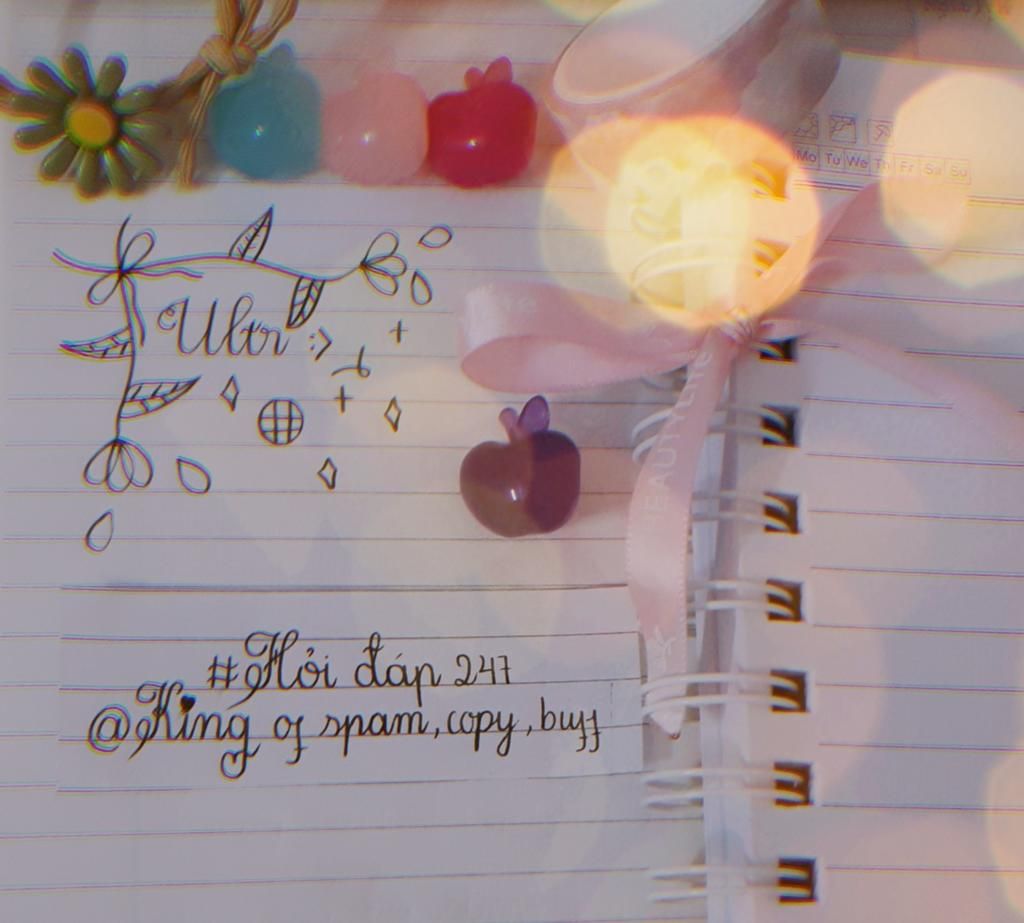 Mo Tu We Th Fr Sa Su
Ultr :>
BEAUTYLINE
#Hỏi đáp 247
@King of spam, copy, buff